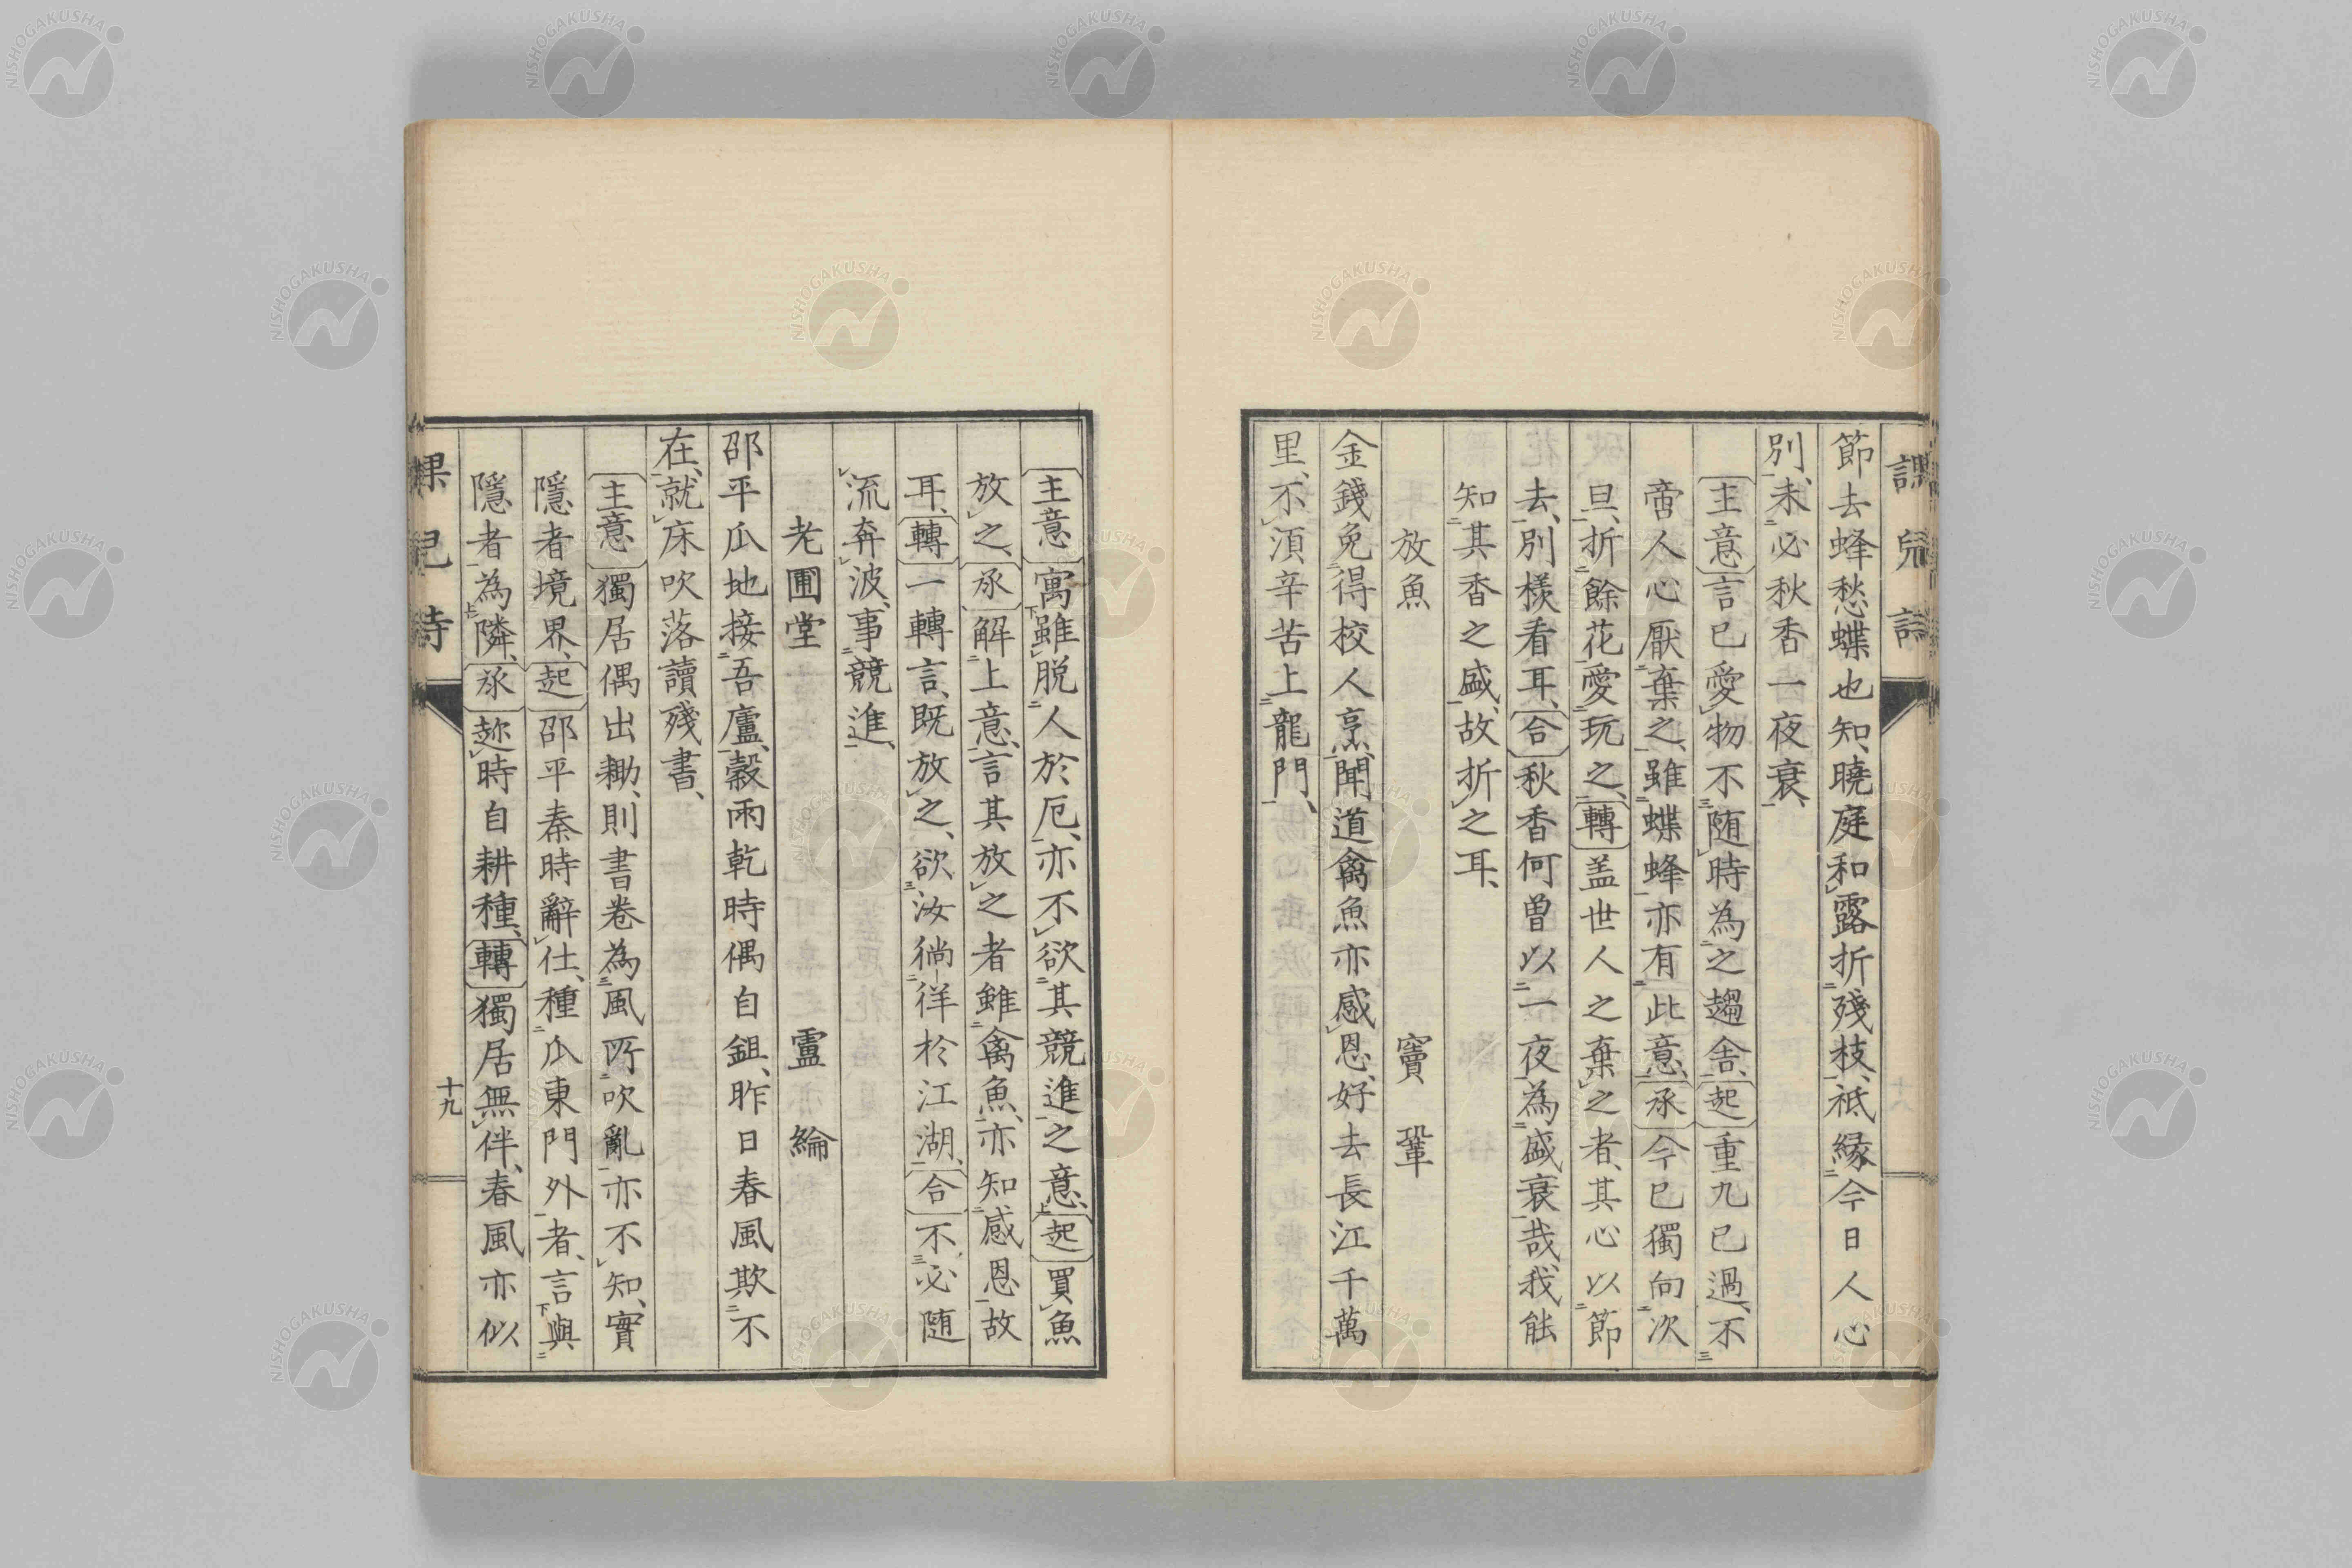 課兒詩
節去蜂愁蝶也知、曉庭和露折殘枝、祗緣今日人心
別、未必秋香一夜衰、
主意言已愛物不随時為之趨舎、起重九已過、不
啻人心厭棄之、雖蝶蜂亦有此意、承今已獨向次
旦、折餘花愛玩之、轉盖世人之棄之者、其心以節
去、別様看耳、合秋香何曽以一夜為盛衰哉、我能
知其香之盛、故折之耳、
放魚 竇鞏
金錢免得校人烹、聞道禽魚亦感恩、好去長江千萬
里、不湏辛苦上龍門、
主意寓雖脱人於厄、亦不欲其競進之意、起買魚
放之、承解上意、言其放之者雖禽魚、亦知感恩故
耳、轉一轉言、既放之、欲汝徜徉於江湖、合不必随
流奔波、事競進、
老圃堂 盧綸
邵平瓜地接吾廬、糓雨乾時偶自鉏、昨日春風欺不
在、就床吹落讀殘書、
主意獨居偶出耡、則書卷為風所吹亂亦不知、實
隱者境界、起邵平秦時辭仕、種瓜東門外者、言與
隱者為隣、承趂時自耕種、轉獨居無伴、春風亦似
課兒詩
十九
NISHOGAKUSHA